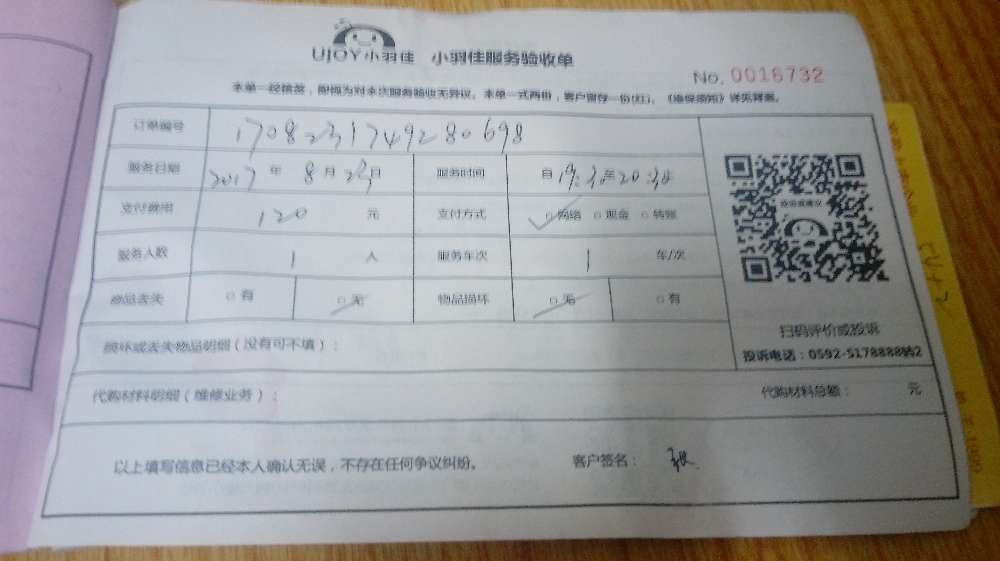 UJOY小羽佳 小羽佳服务验收单
No. 0016732
本单一经核签，即视为对本次服务验收无异议。本单一式两份，客户留存一份(红)。《维保须知》详见背面。
订单编号 1708231749280698
服务日期 2017 年 8 月 23 日 服务时间 自 19:30 至 20:30
支付费用 120 元 支付方式 ☑ 网络 □ 现金 □ 转账
服务人数 1 人 服务车次 1 车/次
物品丢失 □ 有 ☑ 无 物品损坏 ☑ 无 □ 有
扫码评价或投诉
损坏或丢失物品明细(没有可不填)：
投诉电话：0592-5178888转2
代购材料明细(维修业务)： 代购材料总额： 元
以上填写信息已经本人确认无误，不存在任何争议纠纷。 客户签名：